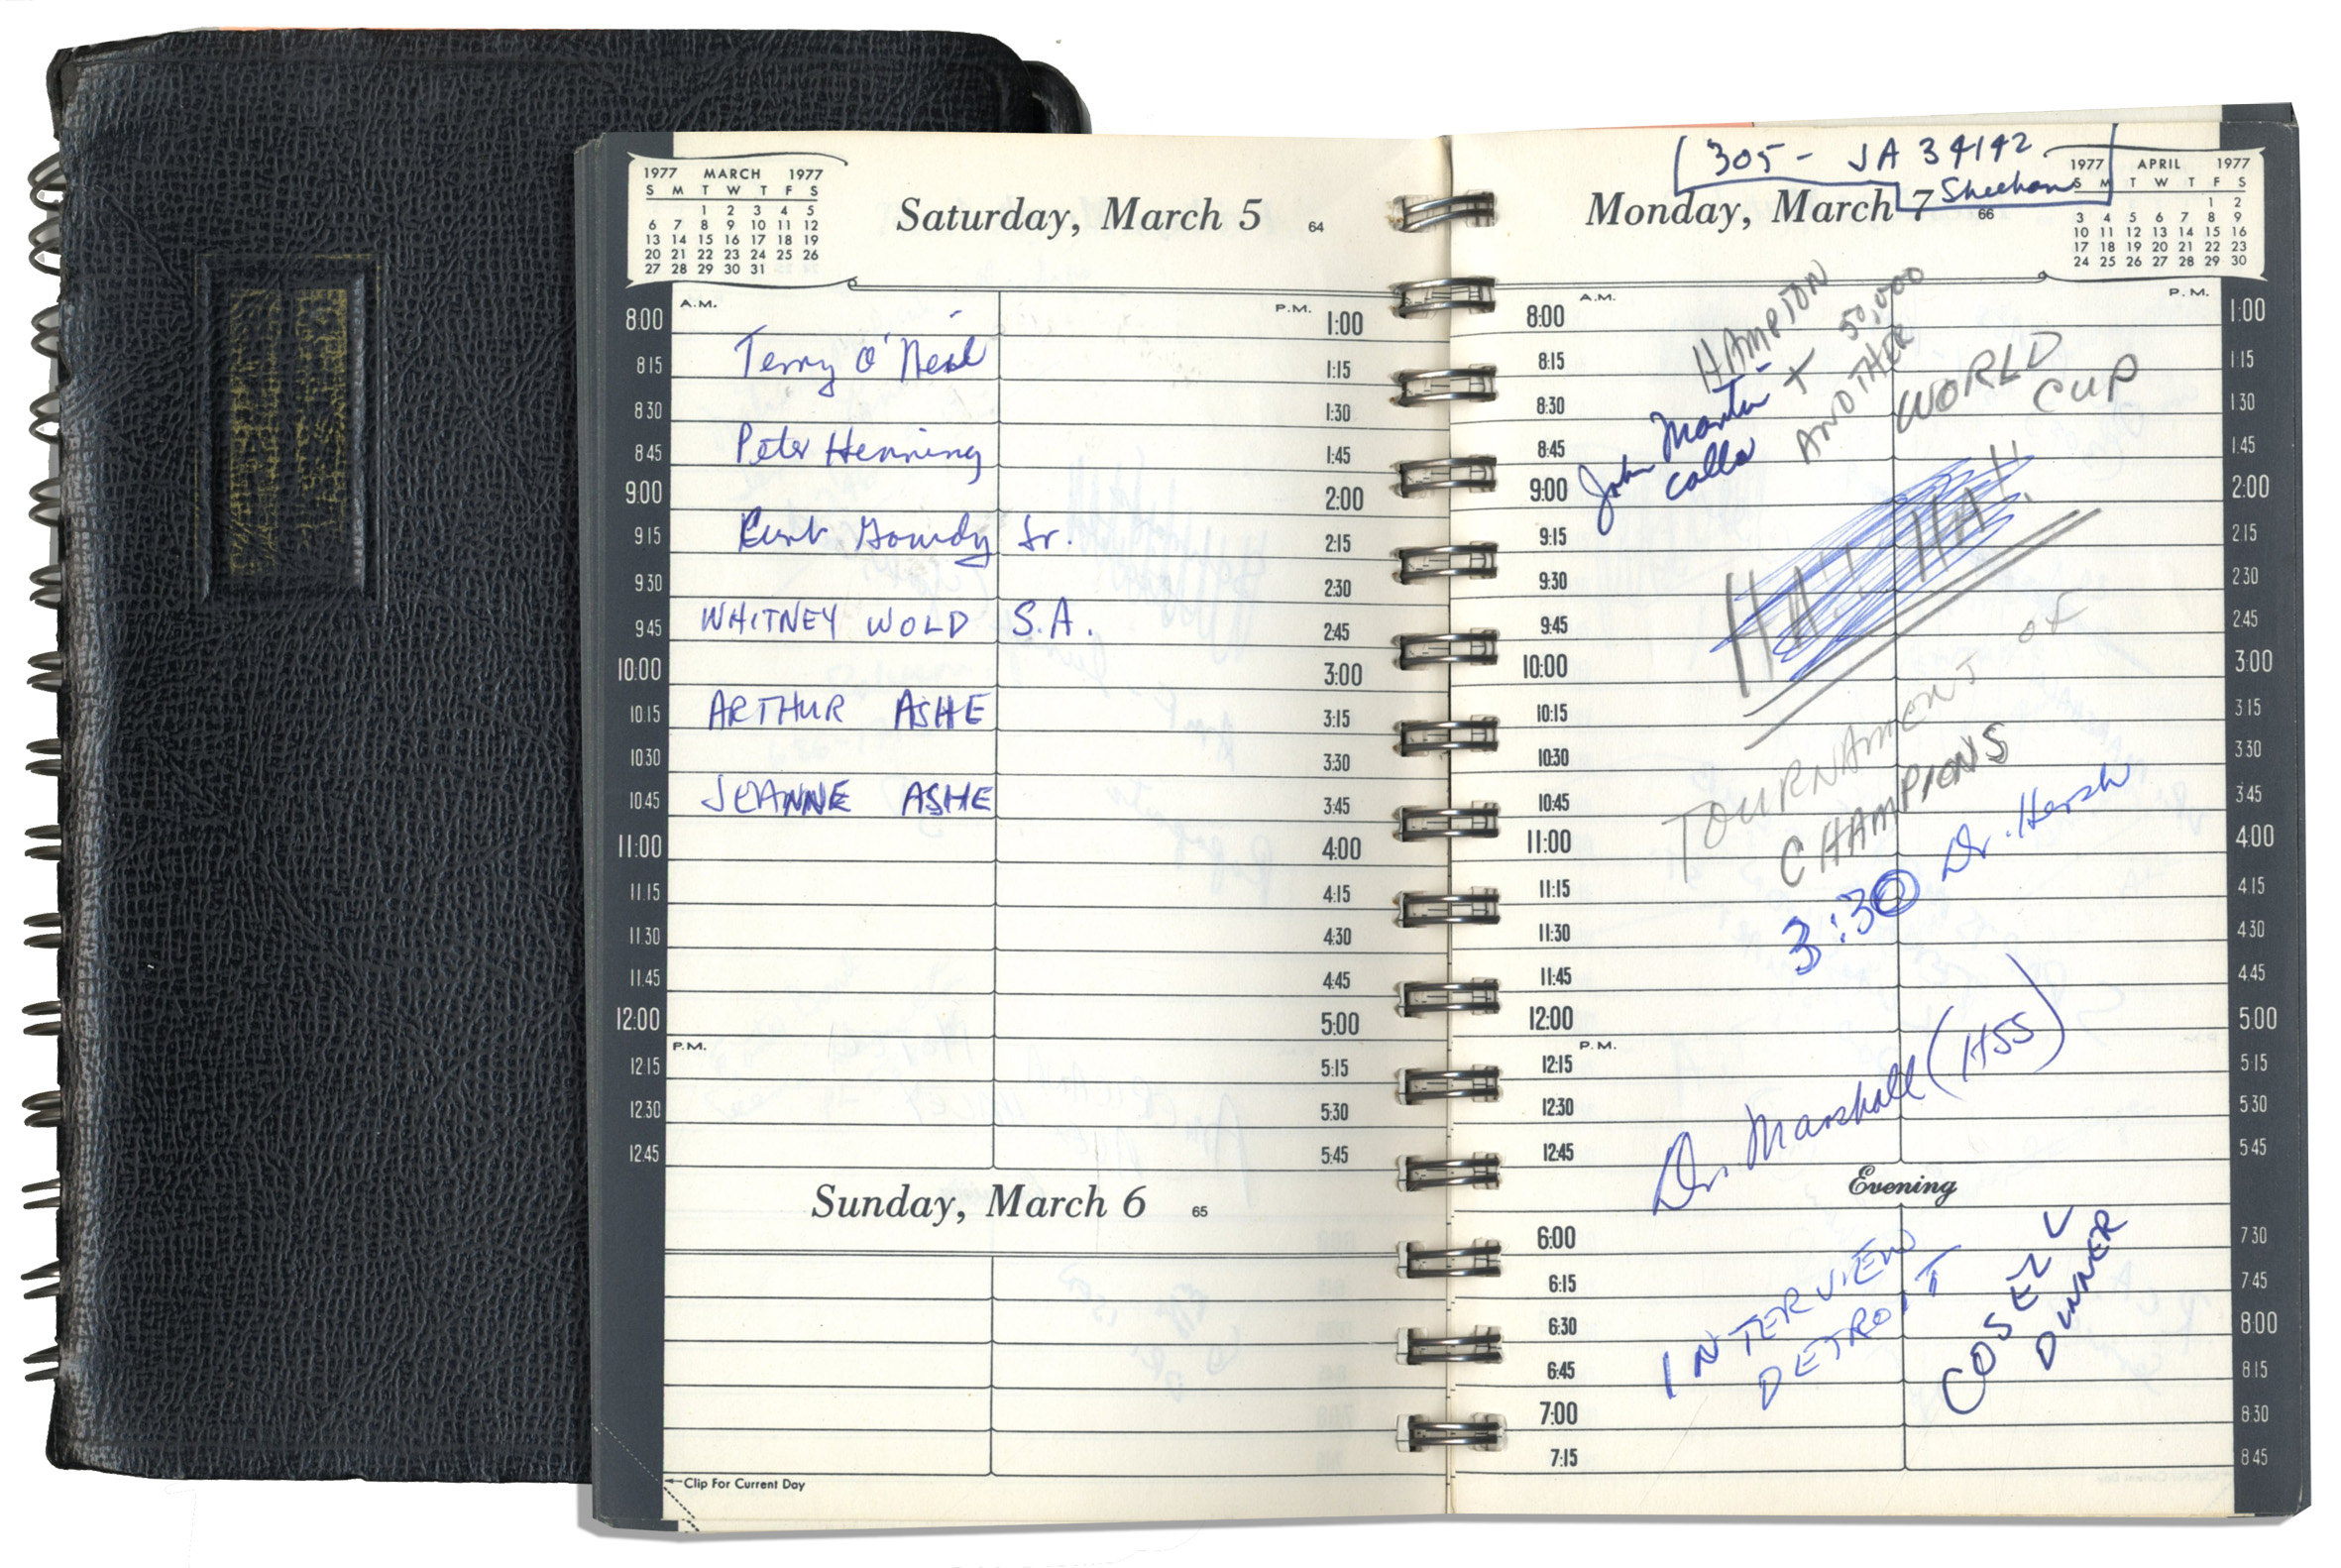 1977 MARCH 1977
S M T W T F S
1 2 3 4 5
6 7 8 9 10 11 12
13 14 15 16 17 18 19
20 21 22 23 24 25 26
27 28 29 30 31
Saturday, March 5 64
A.M.
P.M.
8:00 1:00
8:15 Terry O'Neil 1:15
8:30 1:30
8:45 Peter Henning 1:45
9:00 2:00
9:15 Curt Gowdy Jr. 2:15
9:30 2:30
9:45 WHITNEY WOLD S.A. 2:45
10:00 3:00
10:15 ARTHUR ASHE 3:15
10:30 3:30
10:45 JEANNE ASHE 3:45
11:00 4:00
11:15 4:15
11:30 4:30
11:45 4:45
12:00 5:00
P.M.
12:15 5:15
12:30 5:30
12:45 5:45
Sunday, March 6 65
←Clip For Current Day
305- JA 34142
Sheehan
Monday, March 7 66
1977 APRIL 1977
S M T W T F S
1 2
3 4 5 6 7 8 9
10 11 12 13 14 15 16
17 18 19 20 21 22 23
24 25 26 27 28 29 30
A.M.
P.M.
8:00 1:00
8:15 1:15
8:30 1:30
8:45 1:45
9:00 2:00
9:15 2:15
9:30 2:30
9:45 2:45
10:00 3:00
10:15 3:15
10:30 3:30
10:45 3:45
11:00 4:00
11:15 4:15
11:30 4:30
11:45 4:45
12:00 5:00
P.M.
12:15 5:15
12:30 5:30
12:45 5:45
HAMPTON
+ 50,000
ANOTHER
John Martin
calls
WORLD
CUP
TOURNAMENT OF
CHAMPIONS
3:30 Dr. Hersh
Dr. Marshall (HSS)
Evening
6:00 7:30
6:15 7:45
6:30 8:00
6:45 8:15
7:00 8:30
7:15 8:45
INTERVIEW
DETROIT
COSELL
DINNER